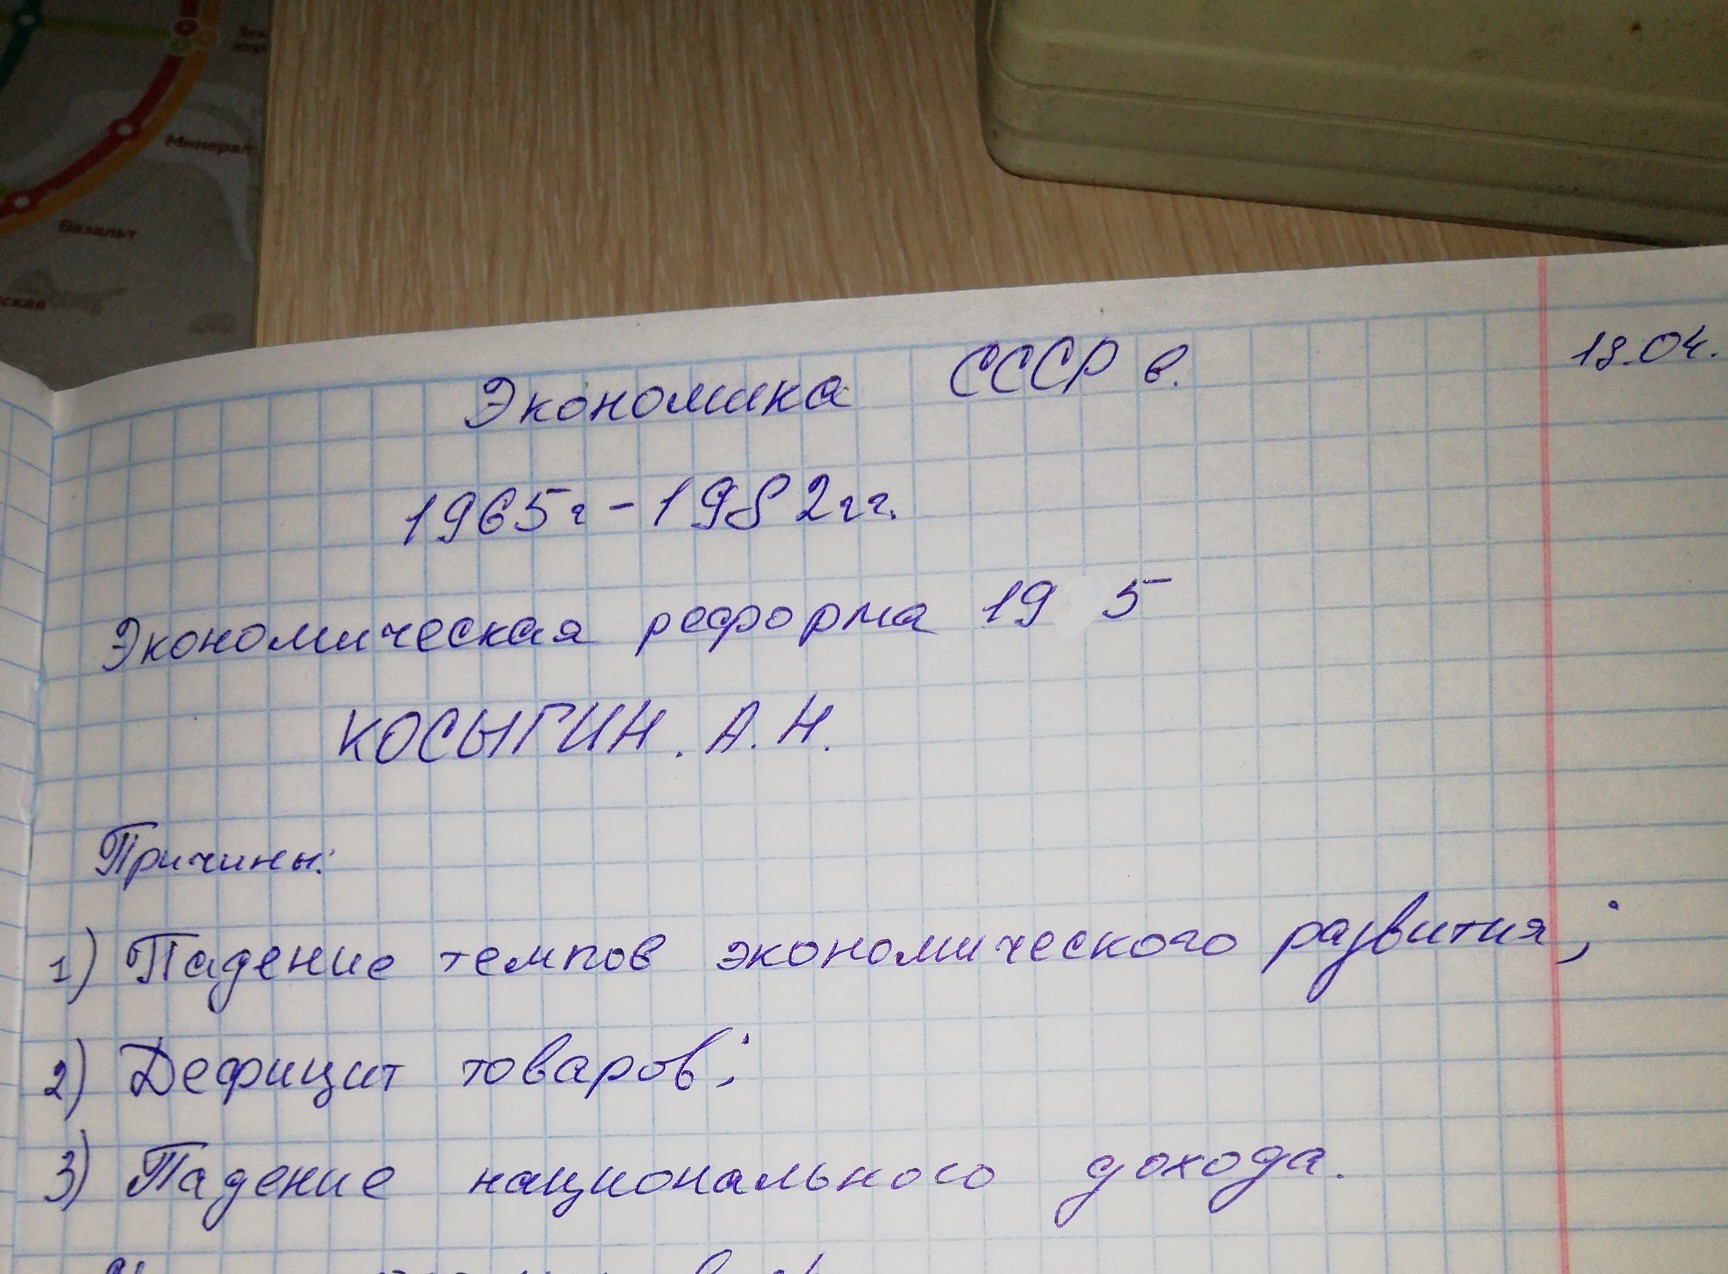 Зел
Минерал
Базальт
ская
19.04.
Экономика СССР в.
1965г - 1982гг.
Экономическая реформа 19 5
КОСЫГИН. А. Н.
Причины:
1) Падение темпов экономического развития;
2) Дефицит товаров;
3) Падение национального дохода.